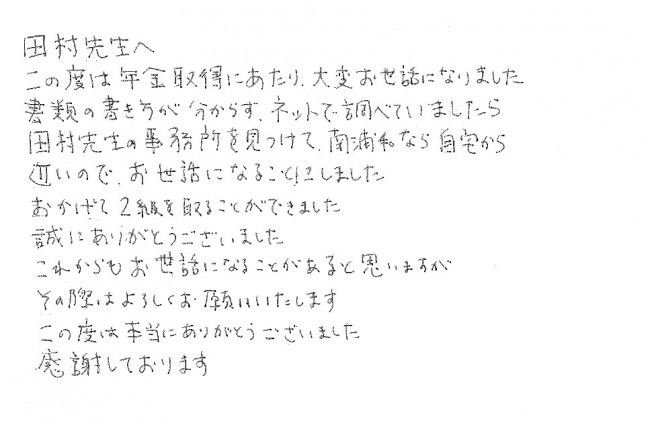 田村先生へ
この度は年金取得にあたり、大変お世話になりました
書類の書き方が分からず、ネットで調べていましたら
田村先生の事務所を見つけて、南浦和なら自宅から
近いので、お世話になることにしました
おかげで2級を取ることができました
誠にありがとうございました
これからもお世話になることがあると思いますが
その際はよろしくお願いいたします
この度は本当にありがとうございました
感謝しております